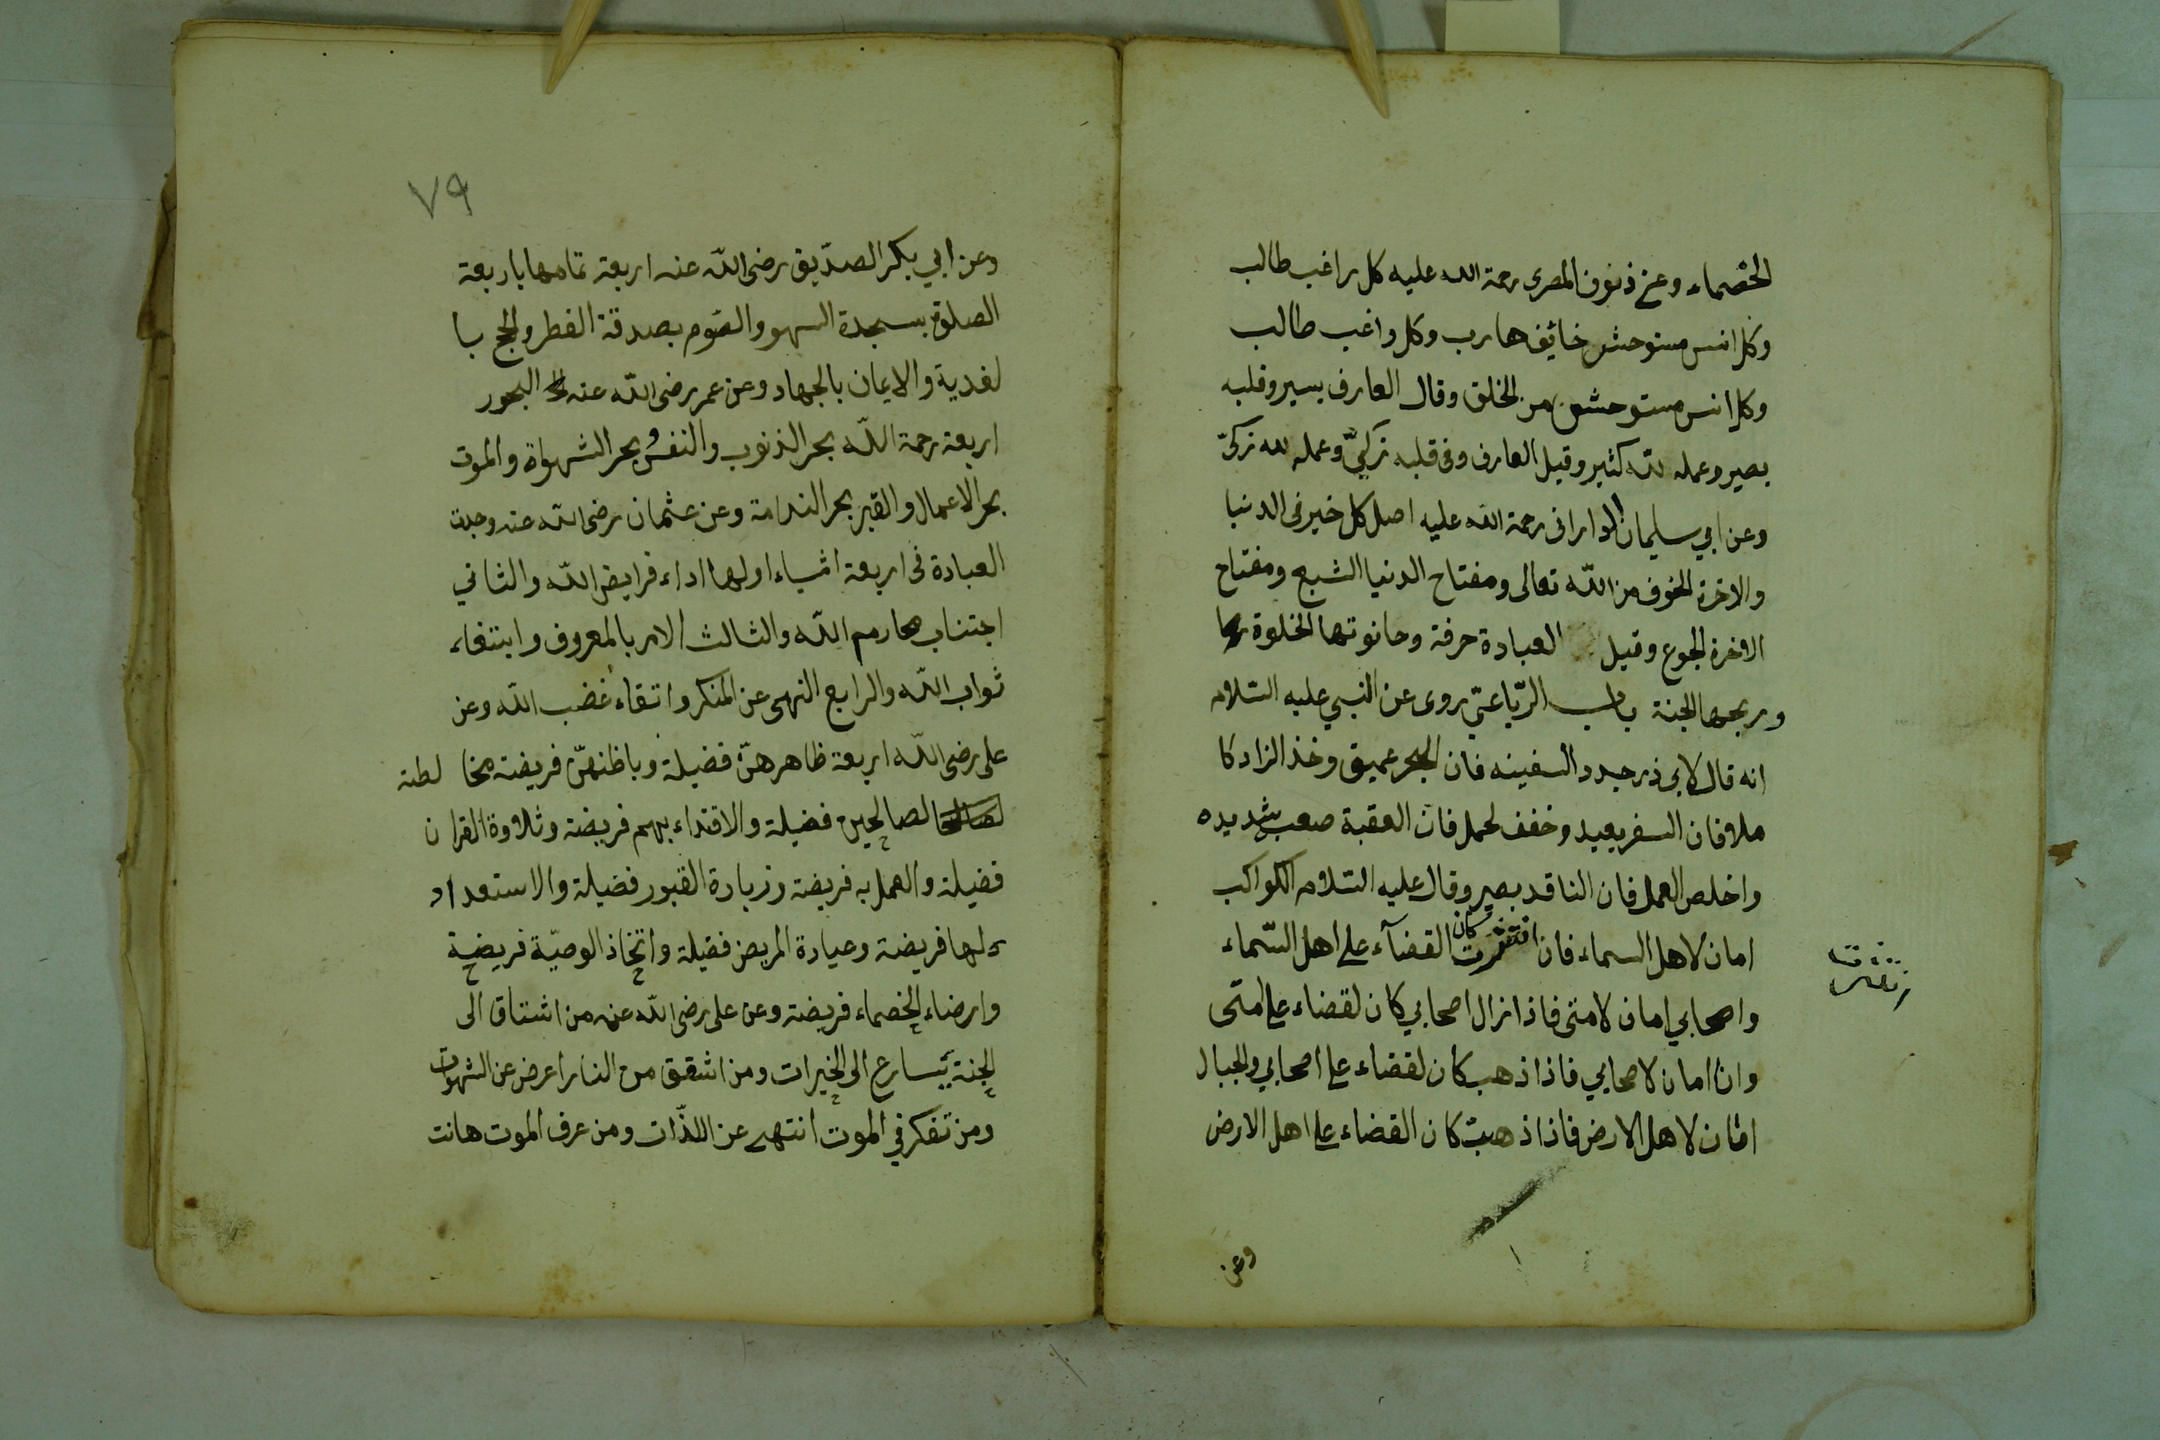 الخصماء وعن ذنون المصرى رحمة الله عليه كل راغب طالب
وكل انس مستوحش خائف هارب وكل واغب طالب
وكل انس مستوحش من الخلق وقال العارف بسير وقلبه
بصير وعمله لله كثير وقيل العارف وفى قلبه زكيّ وعمله لله زكىّ
وعن ابي سليمان الدارانى رحمة الله عليه اصل كل خير فى الدنيا
والاخرة الخوف من الله تعالى ومفتاح الدنيا الشبع ومفتاح
الاخرة الجوع وقيل العبادة حرفة وحانوتها الخلوة
وربحها الجنة باب الرّباعىّ روى عن النبي عليه السّلام
انه قال لابى ذر جدد السفينه فان البحر عميق وخذ الزاد كا
ملا فان السفر بعيد وخفف لحمل فان العقبة صعب شديده
واخلص العمل فان الناقد بصير وقال عليه السّلام الكواكب
امان لاهل السماء فان انتثرت كان القضآء على اهل السّماء
انتثرت
واصحابي امان لامتى فاذا زال اصحابي كان لقضاء على امتى
وانا امان لاصحابي فاذا ذهب كان لقضاء على اصحابي والجبال
امان لاهل الارض فاذا ذهبت كان القضاء على اهل الارض
وعن
٧٩
وعن ابي بكر الصدّيق رضى الله عنه اربعة تمامها باربعة
الصلوة بسجدة السهو والصّوم بصدقة الفطر والحج با
لفدية والايمان بالجهاد وعن عمر رضى الله عنه البحور
اربعة رحمة الله بحر الذنوب والنفس بحر الشهواة والموت
بحر الاعمال والقبر بحر الندامة وعن عثمان رضى الله عنه وجدت
العبادة فى اربعة اشياء اولها اداء فرايض الله والثاني
اجتناب محارم الله والثالث الامر بالمعروف وابتغاء
ثواب الله والرابع النهى عن المنكر واتقاء غضب الله وعن
على رضى الله اربعة ظاهرهنّ فضيلة وباطنهنّ فريضة مخا لطة
الصالحين فضيلة والاقتداء بهم فريضة وتلاوة القران
فضيلة والعمل به فريضة وزيارة القبور فضيلة والاستعداد
لها فريضة وعيادة المريض فضيلة واتخاذ الوصيّة فريضية
وارضاء الخصماء فريضة وعن على رضى الله عنه من اشتاق الى
الجنة يسارع الى الخيرات ومن اشفق من النار اعرض عن الشهوات
ومن تفكر في الموت انتهى عن اللذّات ومن عرف الموت هانت